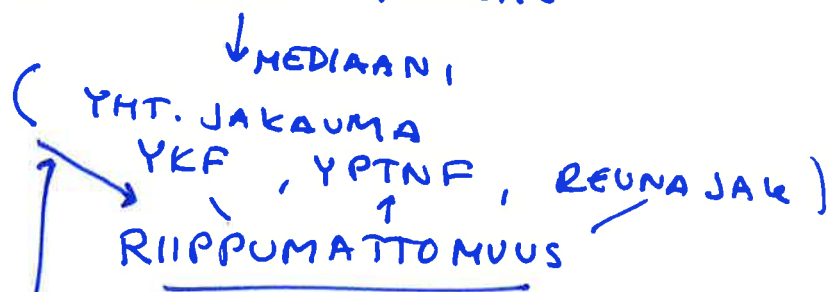 MEDIAANI
( YHT. JAKAUMA
YKF , YPTNF , REUNAJAK )
RIIPPUMATTOMUUS